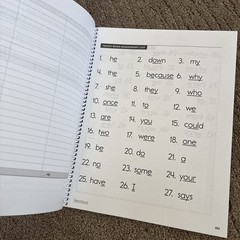 1. he 2. down 3. my
4. the 5. because 6. why
7. she 8. they 9. who
10. once 11. to 12. we
13. are 14. you 15. could
16. two 17. were 18. one
19. be 20. do 21. a
22. no 23. some 24. your
25. have 26. I 27. says